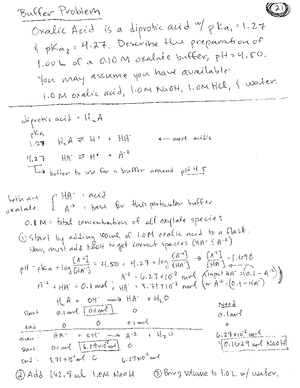 Buffer Problem
21
Oxalic Acid is a diprotic acid w/ pKa₁ = 1.27
& pKa₂ = 4.27. Describe the preparation of
1.00 L of a 0.10 M oxalate buffer, pH = 4.50.
You may assume you have available:
1.0 M oxalic acid, 1.0 M NaOH, 1.0 M HCl, & water.
diprotic acid = H₂A
pKa
1.27 H₂A ⇌ H⁺ + HA⁻ ← more acidic
4.27 HA⁻ ⇌ H⁺ + A⁻²
better to use for a buffer around pH 4.5
both are oxalate. { HA⁻ = acid
A⁻² = base for this particular buffer
0.1 M = total concentration of all oxylate species
① Start by adding 100 mL of 1.0 M oxalic acid to a flask.
Now, must add NaOH to get correct species (HA⁻ & A⁻²)
pH = pKa + log [A⁻²]/[HA⁻] → 4.50 = 4.27 + log [A⁻²]/[HA⁻] → [A⁻²]/[HA⁻] = 1.698
A⁻² + HA⁻ = 0.1 mol;
A⁻² = 6.29 x 10⁻² mol
HA⁻ = 3.71 x 10⁻² mol
(input HA⁻ = (0.1 - A⁻²)
or A⁻² = (0.1 - HA⁻))
H₂A + OH⁻ → HA⁻ + H₂O
start 0.1 mol 0.1 mol 0
end 0 0 0.1 mol
HA⁻ + OH⁻ → A⁻² + H₂O
start 0.1 mol 6.29x10⁻² mol 0
end: 3.71x10⁻² mol 0 6.29x10⁻²
Need
0.1 mol
+
6.29x10⁻² mol
0.1629 mol NaOH
② Add 162.9 mL 1.0 M NaOH
③ Bring volume to 1.0 L w/ water.